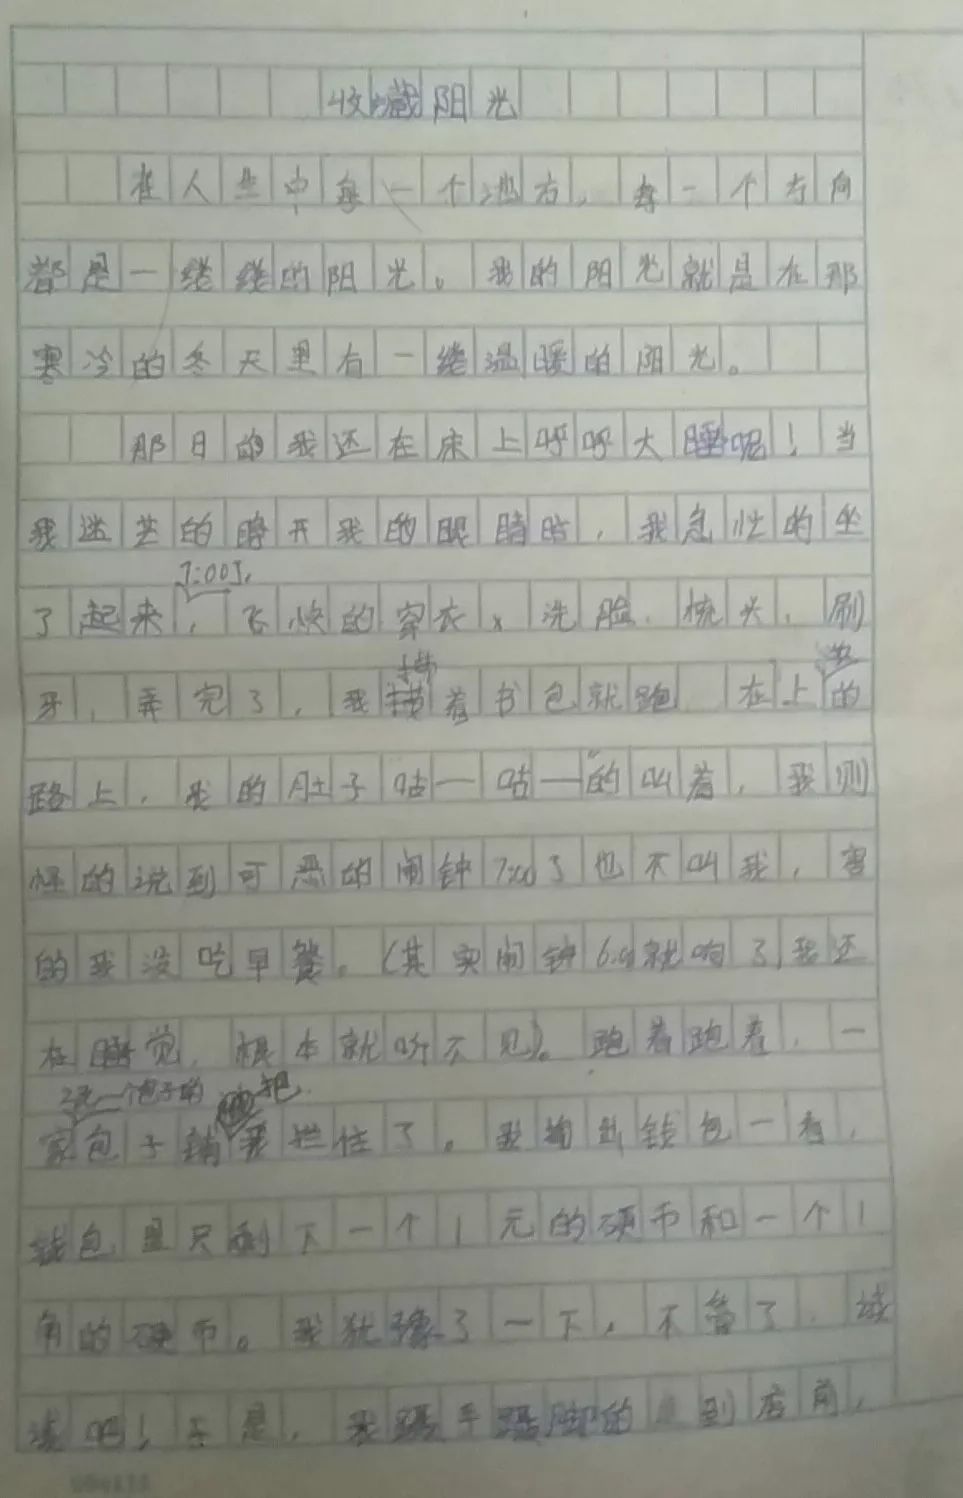 收藏阳光
在人生中每一个地方，每一个方向
都是一缕缕的阳光。我的阳光就是在那
寒冷的冬天里有一缕温暖的阳光。
那日的我还在床上呼呼大睡呢！当
我迷芒的睁开我的眼睛时，我急忙的坐
7:00了，
了起来，飞快的穿衣、洗脸、梳头、刷
牙，弄完了，我揹着书包就跑，在上学的
路上，我的肚子咕—咕—的叫着，我则
怪的说到可恶的闹钟7:00了也不叫我，害
的我没吃早餐。（其实闹钟6:00就响了，我还
在睡觉，根本就听不见）。跑着跑着，一
2元一个包子的 把
家包子铺我拦住了。我掏出钱包一看，
钱包里只剩下一个1元的硬币和一个1
角的硬币。我犹豫了一下，不管了，试
试吧！于是，我蹑手蹑脚的 到店前，